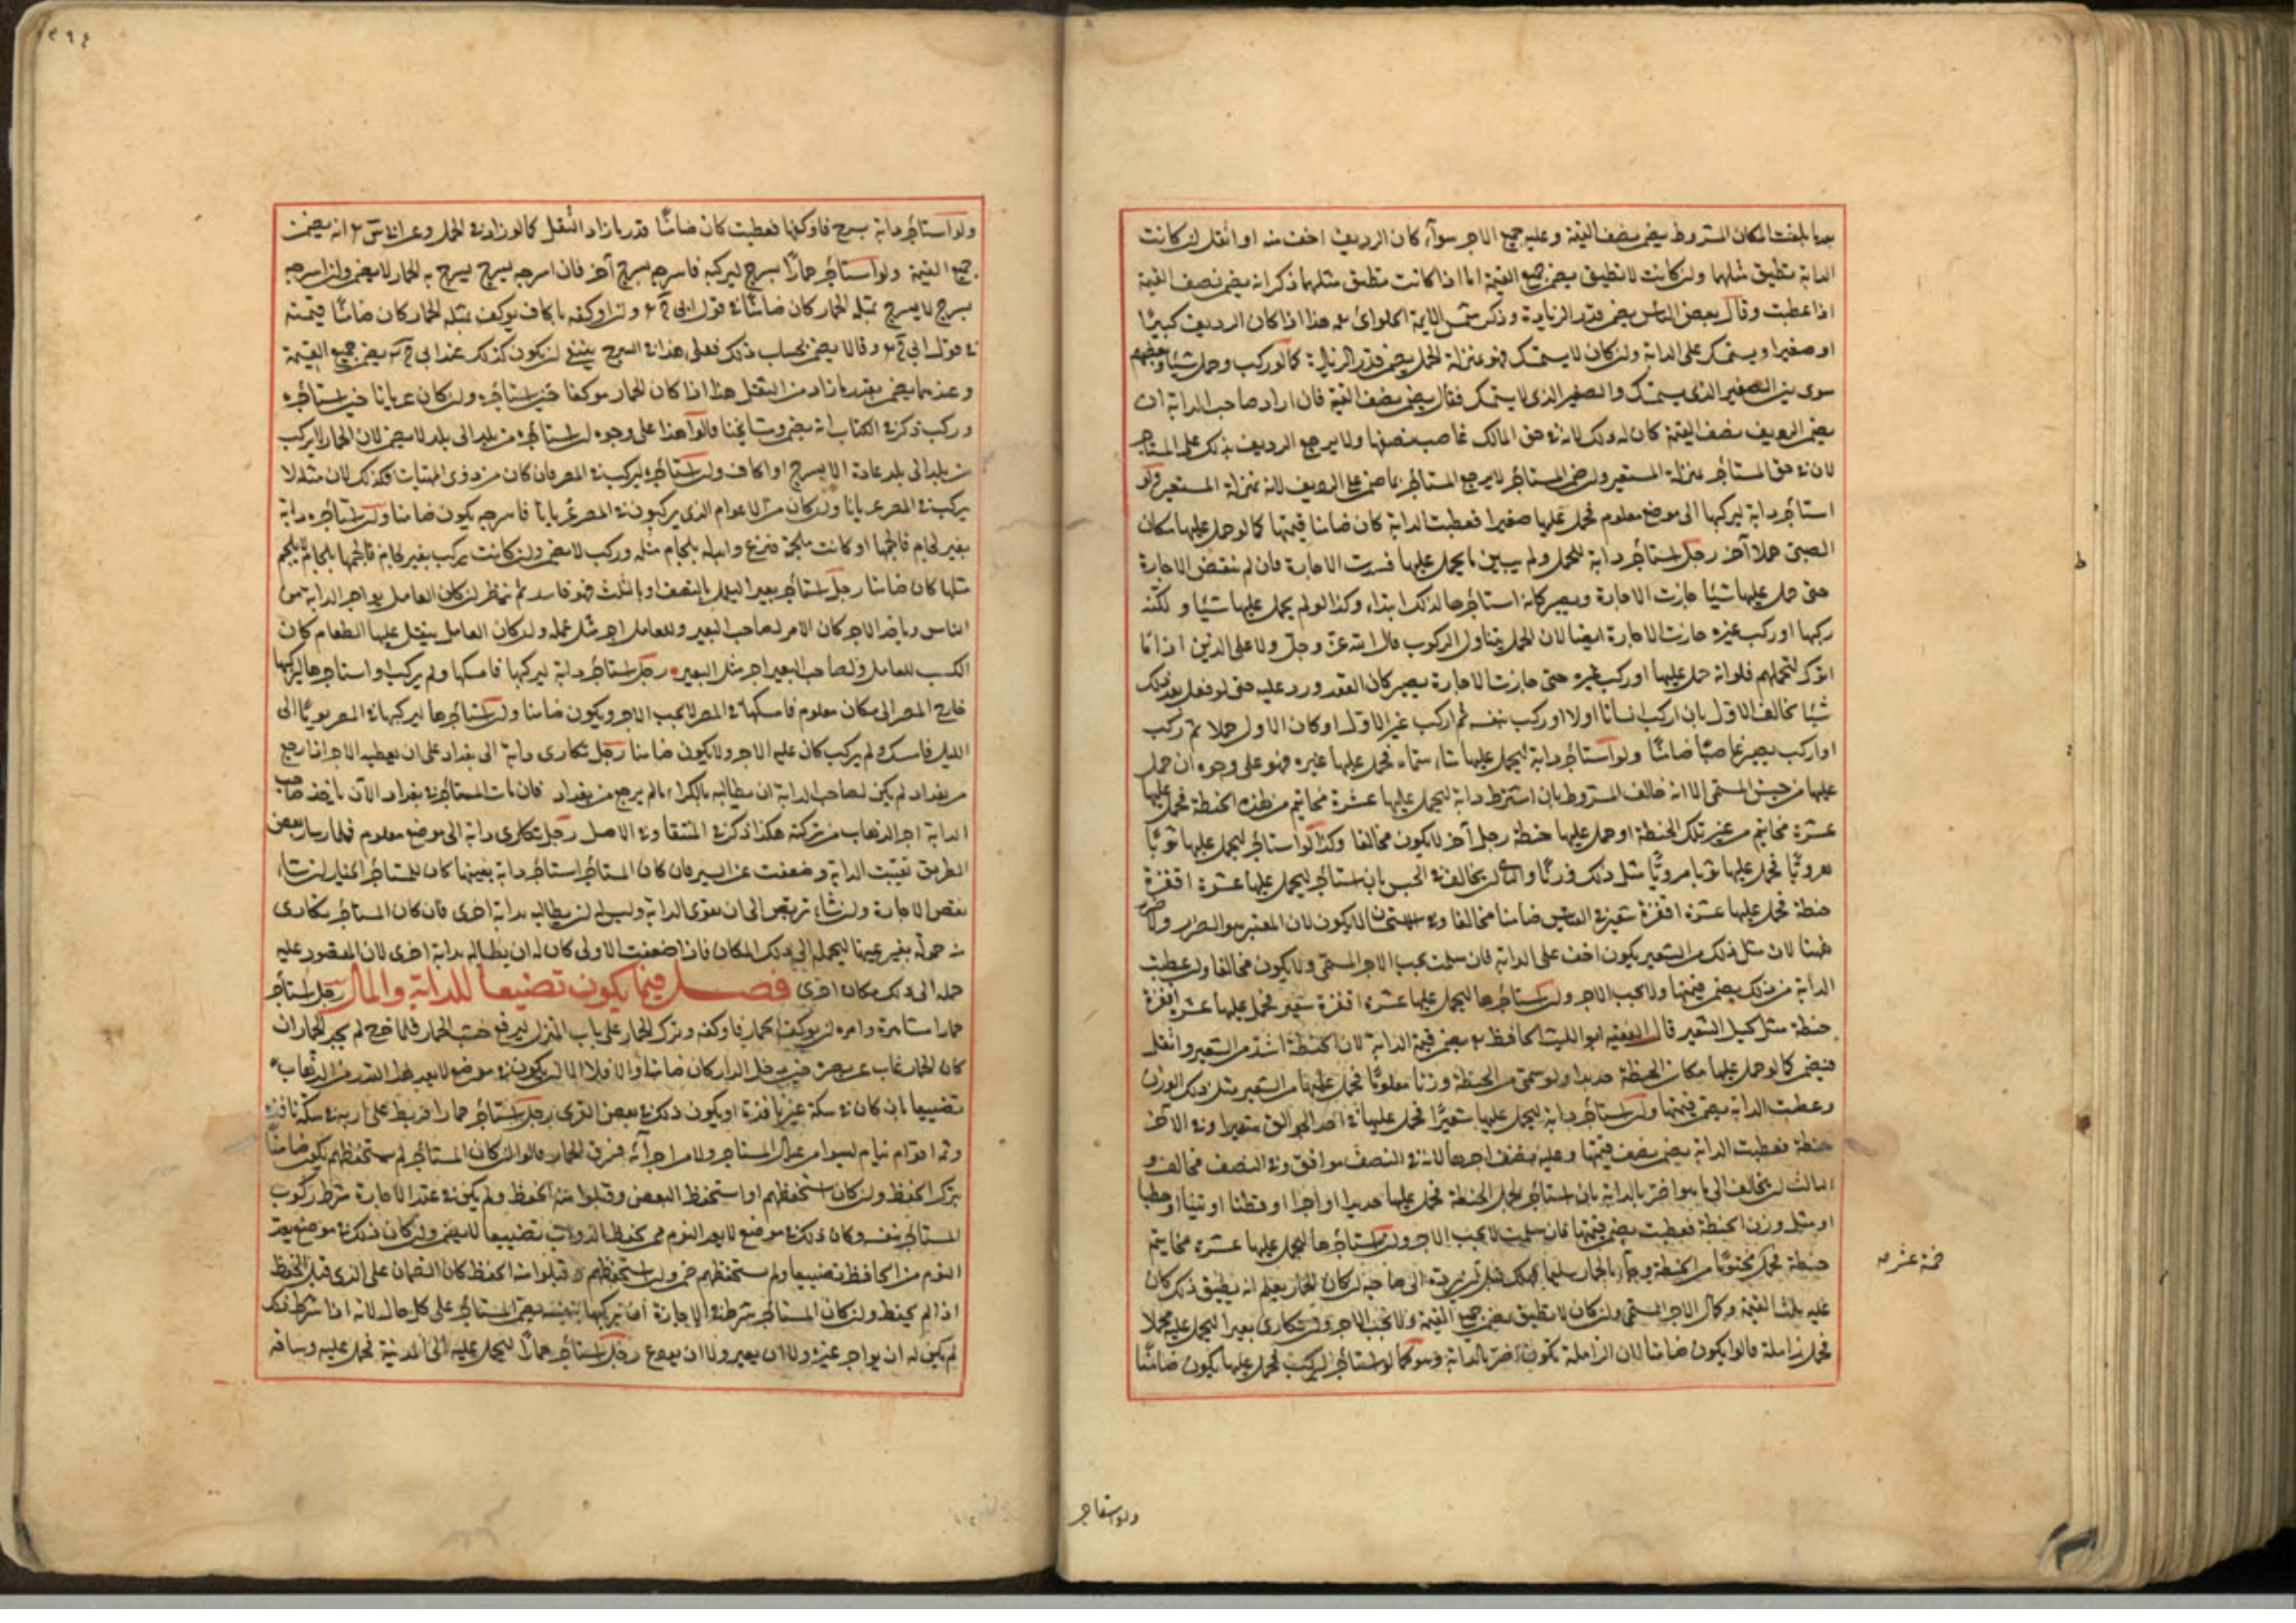 بعدما بلغت المكان المشروط يضمن نصف القيمة وعليه جميع الاجر سوآء كان الرديف اخف منه او اثقل ان كانت
الدابة تطيق مثلها وان كانت لا تطيق يضمن جميع القيمة اما اذا كانت تطيق مثلهما ذكر انه يضمن نصف القيمة
اذا عطبت وقال بعض الناس يضمن قدر الزيادة وذكر شمس الايمة الحلوائي هذا اذا كان الرديف كبيرا
او صغيرا ويستمسك على الدابة وان كان لا يستمسك فهو بمنزلة الحمل يضمن قدر الزيادة كما لو ركب وحمل شيئا وبعضهم
سوى بين الصغير الذى يستمسك والصغير الذى لا يستمسك فقال يضمن نصف القيمة فان اراد صاحب الدابة ان
يضمن الرديف نصف القيمة كان له ذلك لانه في حق المالك غاصب نصفها ولا يرجع الرديف بذلك على المستاجر
لانه في حق المستأجر بمنزلة المستعير وان ضمن المستاجر لا يرجع المستأجر بما ضمن على الرديف لانه بمنزلة المستعير ولو
استأجر دابة ليركبها الى موضع معلوم فحمل عليها صغيرا فعطبت الدابة كان ضامنا قيمتها كما لو حمل عليها مكان
الصبى حملا آخر رجل استأجر دابة للحمل ولم يبين ما يحمل عليها فسدت الاجارة فان لم ينقض الاجارة
حتى حمل عليها شيئا جازت الاجارة ويصير كانه استأجرها لذلك ابتداء وكذا لو لم يحمل عليها شيئا ولكنه
ركبها او ركب غيره جازت الاجارة ايضا لان الحمل يتناول الركوب قال الله عز وجل ولا على الذين اذا ما
اتوك لتحملهم فلو انه حمل عليها او ركب غيره حتى جازت الاجارة يصير كان العقد ورد عليه حتى لو فعل بعد ذلك
شيئا يخالف الاول بان اركب انسانا اولا او ركب بنفسه ثم اركب غير الاول او كان الاول حملا ثم ركب
او اركب يصير غاصبا ضامنا ولو استأجر دابة ليحمل عليها شيئا سماه فحمل عليها غيره فهو على وجوه ان حمل
عليها من جنس المسمى الا انه خالف المشروط بان استأجر دابة ليحمل عليها عشرة مخاتيم من هذه الحنطة فحمل عليها
عشرة مخاتيم من غير تلك الحنطة او حمل عليها حنطة رجل آخر لا يكون مخالفا وكذا لو استأجر ليحمل عليها ثوبا
هرويا فحمل عليها ثوبا مرويا مثل ذلك وزنا والثاني ان يخالف في الجنس بان استأجر ليحمل عليها عشرة اقفزة
حنطة فحمل عليها عشرة اقفزة شعير في القياس ضامنا مخالفا وفي الاستحسان لا يكون لان المعتبر هو الضرر ولا ضرر
ههنا لان مثل ذلك من الشعير يكون اخف على الدابة فان سلمت يجب الاجر المسمى ولا يكون مخالفا وان عطبت
الدابة من ذلك يضمن قيمتها ولا يجب الاجر وان استأجرها ليحمل عليها عشرة اقفزة شعير فحمل عليها عشر اقفزة
حنطة مثل كيل الشعير قال الفقيه ابو الليث الحافظ يضمن قيمة الدابة لان الحنطة اشد من الشعير واثقل
فيضمن كما لو حمل عليها مكان الحنطة حديدا ولو سمى من الحنطة وزنا معلوما فحمل عليها من الشعير مثل ذلك الوزن
وعطبت الدابة يضمن قيمتها ولو استأجر دابة ليحمل عليها شعيرا فحمل عليها في احد الجوالق شعيرا وفي الآخر
حنطة فعطبت الدابة يضمن نصف قيمتها وعليه نصف اجرها لانه في النصف موافق وفي النصف مخالف و
الثالث ان يخالف الى ما هو اضر بالدابة بان استأجر لحمل الحنطة فحمل عليها حديدا او آجرا او قطنا او تبنا او حطبا
او مثل وزن الحنطة فعطبت يضمن قيمتها فان سلمت لا يجب الاجر ولو استأجرها ليحمل عليها عشرة مخاتيم
حنطة فحمل مختوما من الحنطة وجآء بالحمار سليما فهلك قبل ان يرده الى صاحبه ان كان الحمار يعلم انه يطيق ذلك كان
عليه ثلث القيمة وكمال الاجر المسمى وان كان لا تطيق يضمن جميع القيمة ولا يجب الاجر ولو تكارى بعيرا ليحمل عليه محملا
فحمل زاملة قالوا يكون ضامنا لان الزاملة تكون اضر بالدابة وهو كما لو استأجر ليركب فحمل عليها يكون ضامنا
خمسة عشر صح
ولو استاجر
ولو استأجر دابة بسرج فاوكفها فعطبت كان ضامنا قدر ما زاد الثقل كما لو زاد في الحمل وعن انه يضمن
جميع القيمة ولو استأجر حمارا بسرج ليركبه فاسرجه بسرج آخر فان اسرجه بسرج يسرج به الحمار لا يضمن وان اسرجه
بسرج لا يسرج بمثله الحمار كان ضامنا في قول ابي ح وان اوكفه باكاف يوكف بمثله الحمار كان ضامنا قيمته
في قول ابي ح وقالا يضمن بحساب ذلك فعلى هذا في السرج ينبغي ان يكون كذلك عند ابي ح يضمن جميع القيمة
وعندهما يضمن بقدر ما زاد من الثقل هذا اذا كان الحمار موكفا حين استأجره وان كان عريانا حين استأجره
وركب ذكر في الكتاب انه يضمن ومشايخنا قالوا هذا على وجوه ان استأجره من بلد الى بلد لا يضمن لان الحمار لا يركب
من بلد الى بلد عادة الا بسرج او اكاف وان استأجره ليركب في المصر فان كان من ذوى الهيئات فكذلك لان مثله لا
يركب في المصر عريانا وان كان من العوام الذى يركبون في المصر عريانا فاسرجه يكون ضامنا ولو استأجره دابة
بغير لجام فالجمها او كانت ملجمة فنزع وابدله بلجام مثله وركب لا يضمن وان كانت يركب بغير لجام فالجمها بلجام لا يلجم
مثلها كان ضامنا رجل استأجر بعيرا ليعمل بالنصف او بالثلث فهو فاسد ثم ينظر ان كان العامل يواجر الدابة من
الناس وياخذ الاجر كان الاجر لصاحب البعير وللعامل اجر مثل عمله وان كان العامل ينقل عليها الطعام كان
الكسب للعامل ولصاحب البعير اجر مثل البعير رجل استأجر دابة ليركبها فامسكها ولم يركب او استاجرها ليركبها
خارج المصر الى مكان معلوم فامسكها في المصر لا يجب الاجر ويكون ضامنا ولو استأجرها ليركبها في المصر يوما الى
الليل فامسك ولم يركب كان عليه الاجر ولا يكون ضامنا رجل تكارى دابة الى بغداد على ان يعطيه الاجر اذا رجع
من بغداد لم يكن لصاحب الدابة ان يطالبه بالكراء ما لم يرجع من بغداد فان مات المستأجر في بغداد الآن ياخذ صاحب
الدابة اجر الذهاب من تركته هكذا ذكر في المنتقا وفي الاصل رجل تكارى دابة الى موضع معلوم فلما سار بعض
الطريق تعيبت الدابة وضعفت عن السير فان كان المستأجر استأجر دابة بعينها كان للمستأجر الخيار ان شاء
نقض الاجارة وان شاء تربص الى ان تقوى الدابة وليس له ان يطالبه بدابة اخرى فان كان المستأجر تكارى
منه حمولة بغير عينها ليحمله الى ذلك المكان فاذا ضعفت الاولى كان له ان يطالبه بدابة اخرى لان المعقود عليه
حمله الى ذلك مكان اخرى فصل فيما يكون تضييعا للدابة والمال رجل استأجر
حمارا استامره وامره ان يوكف الحمار فاوكفه وترك الحمار على باب المنزل ليرفع خشب الحمار فلما خرج لم يجد الحمار ان
كان الحمار غاب عن بصره حين دخل الدار كان ضامنا والا فلا الا ان يكون في موضع لا يعد هذا القدر من الذهاب
تضييعا بان كان في سكة غير نافذة او يكون ذلك في بعض القرى رجل استأجر حمارا فربط على اريه في سكة نافذة
وثمه اقوام نيام ليسوا من عيال المستاجر ولا من اجرآئه فسرق الحمار قالوا ان كان المستأجر لم يستحفظهم يكون ضامنا
بترك الحفظ وان كان استحفظهم او استحفظ البعض وقبلوا منه الحفظ ولم يكن في عقد الاجارة شرط ركوب
المستأجر بنفسه وكان ذلك في موضع لا يعد النوم ممن يحفظ الدواب تضييعا لا يضمن وان كان ذلك في موضع يعد
النوم من الحافظ تضييعا ولم يستحفظهم ضمن وان استحفظهم وقبلوا منه الحفظ كان الضمان على الذى قبل الحفظ
اذا لم يحفظ وان كان المستأجر شرط في الاجارة ان يركبها بنفسه يضمن المستأجر على كل حال لانه اذا شرط ذلك
لم يكن له ان يواجر غيره ولا ان يعير ولا ان يودع رجل استأجر حمارا ليحمل عليه الى المدينة فحمل عليه وساقه